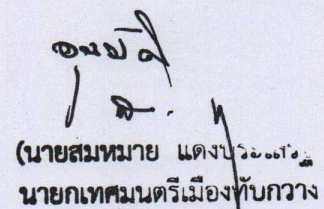 อนุมัติ
(นายสมหมาย แดงประเสริฐ
นายกเทศมนตรีเมืองทับกวาง